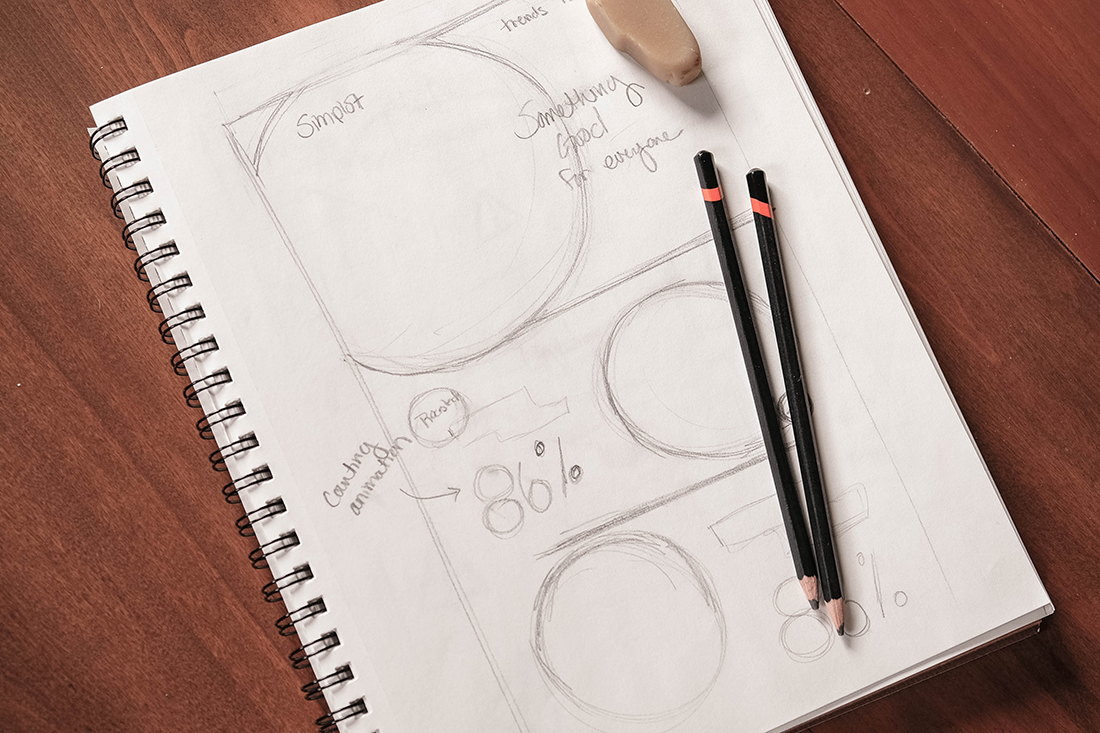 trends
Simplot
Something
Good
For everyone
Counting
animation
86%
86%